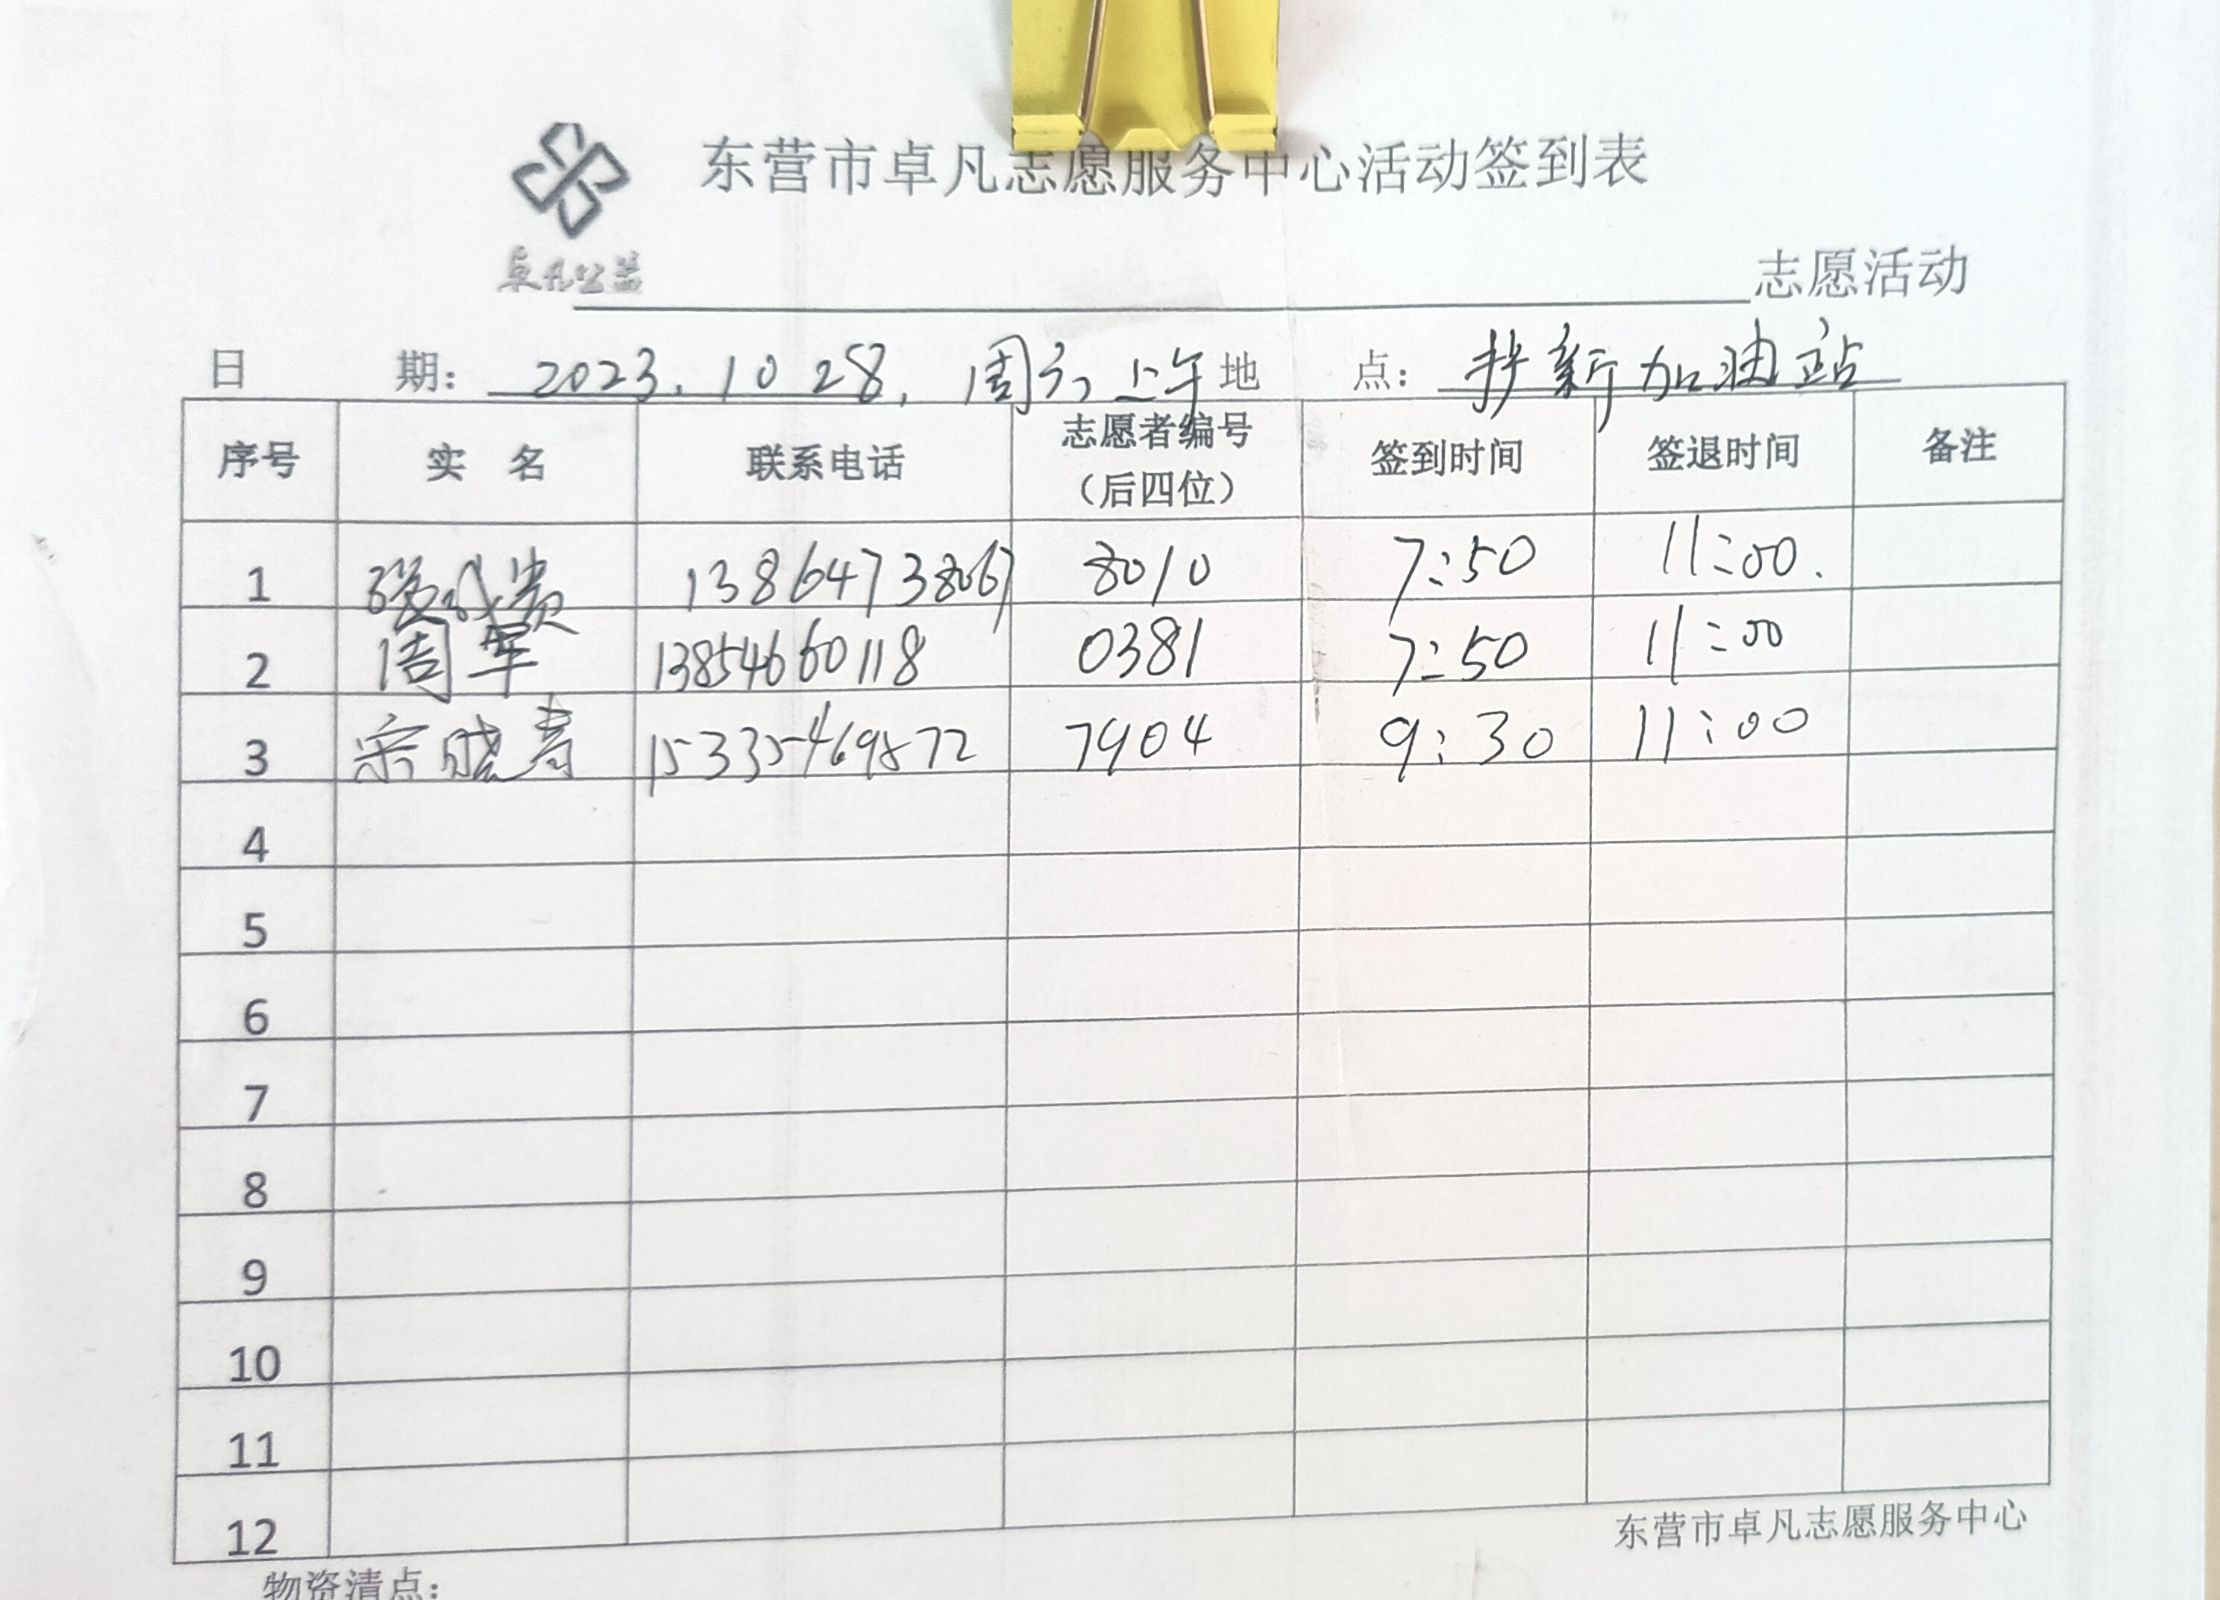 东营市卓凡志愿服务中心活动签到表
卓凡公益
志愿活动
日 期: 2023.10 28. 周六上午 地 点: 新加油站
序号 实 名 联系电话 志愿者编号（后四位） 签到时间 签退时间 备注
1 13864738067 8010 7:50 11:00.
2 周军 13854660118 0381 7:50 11:00
3 宋晓青 15335469872 7904 9:30 11:00
4
5
6
7
8
9
10
11
12
东营市卓凡志愿服务中心
物资清点: